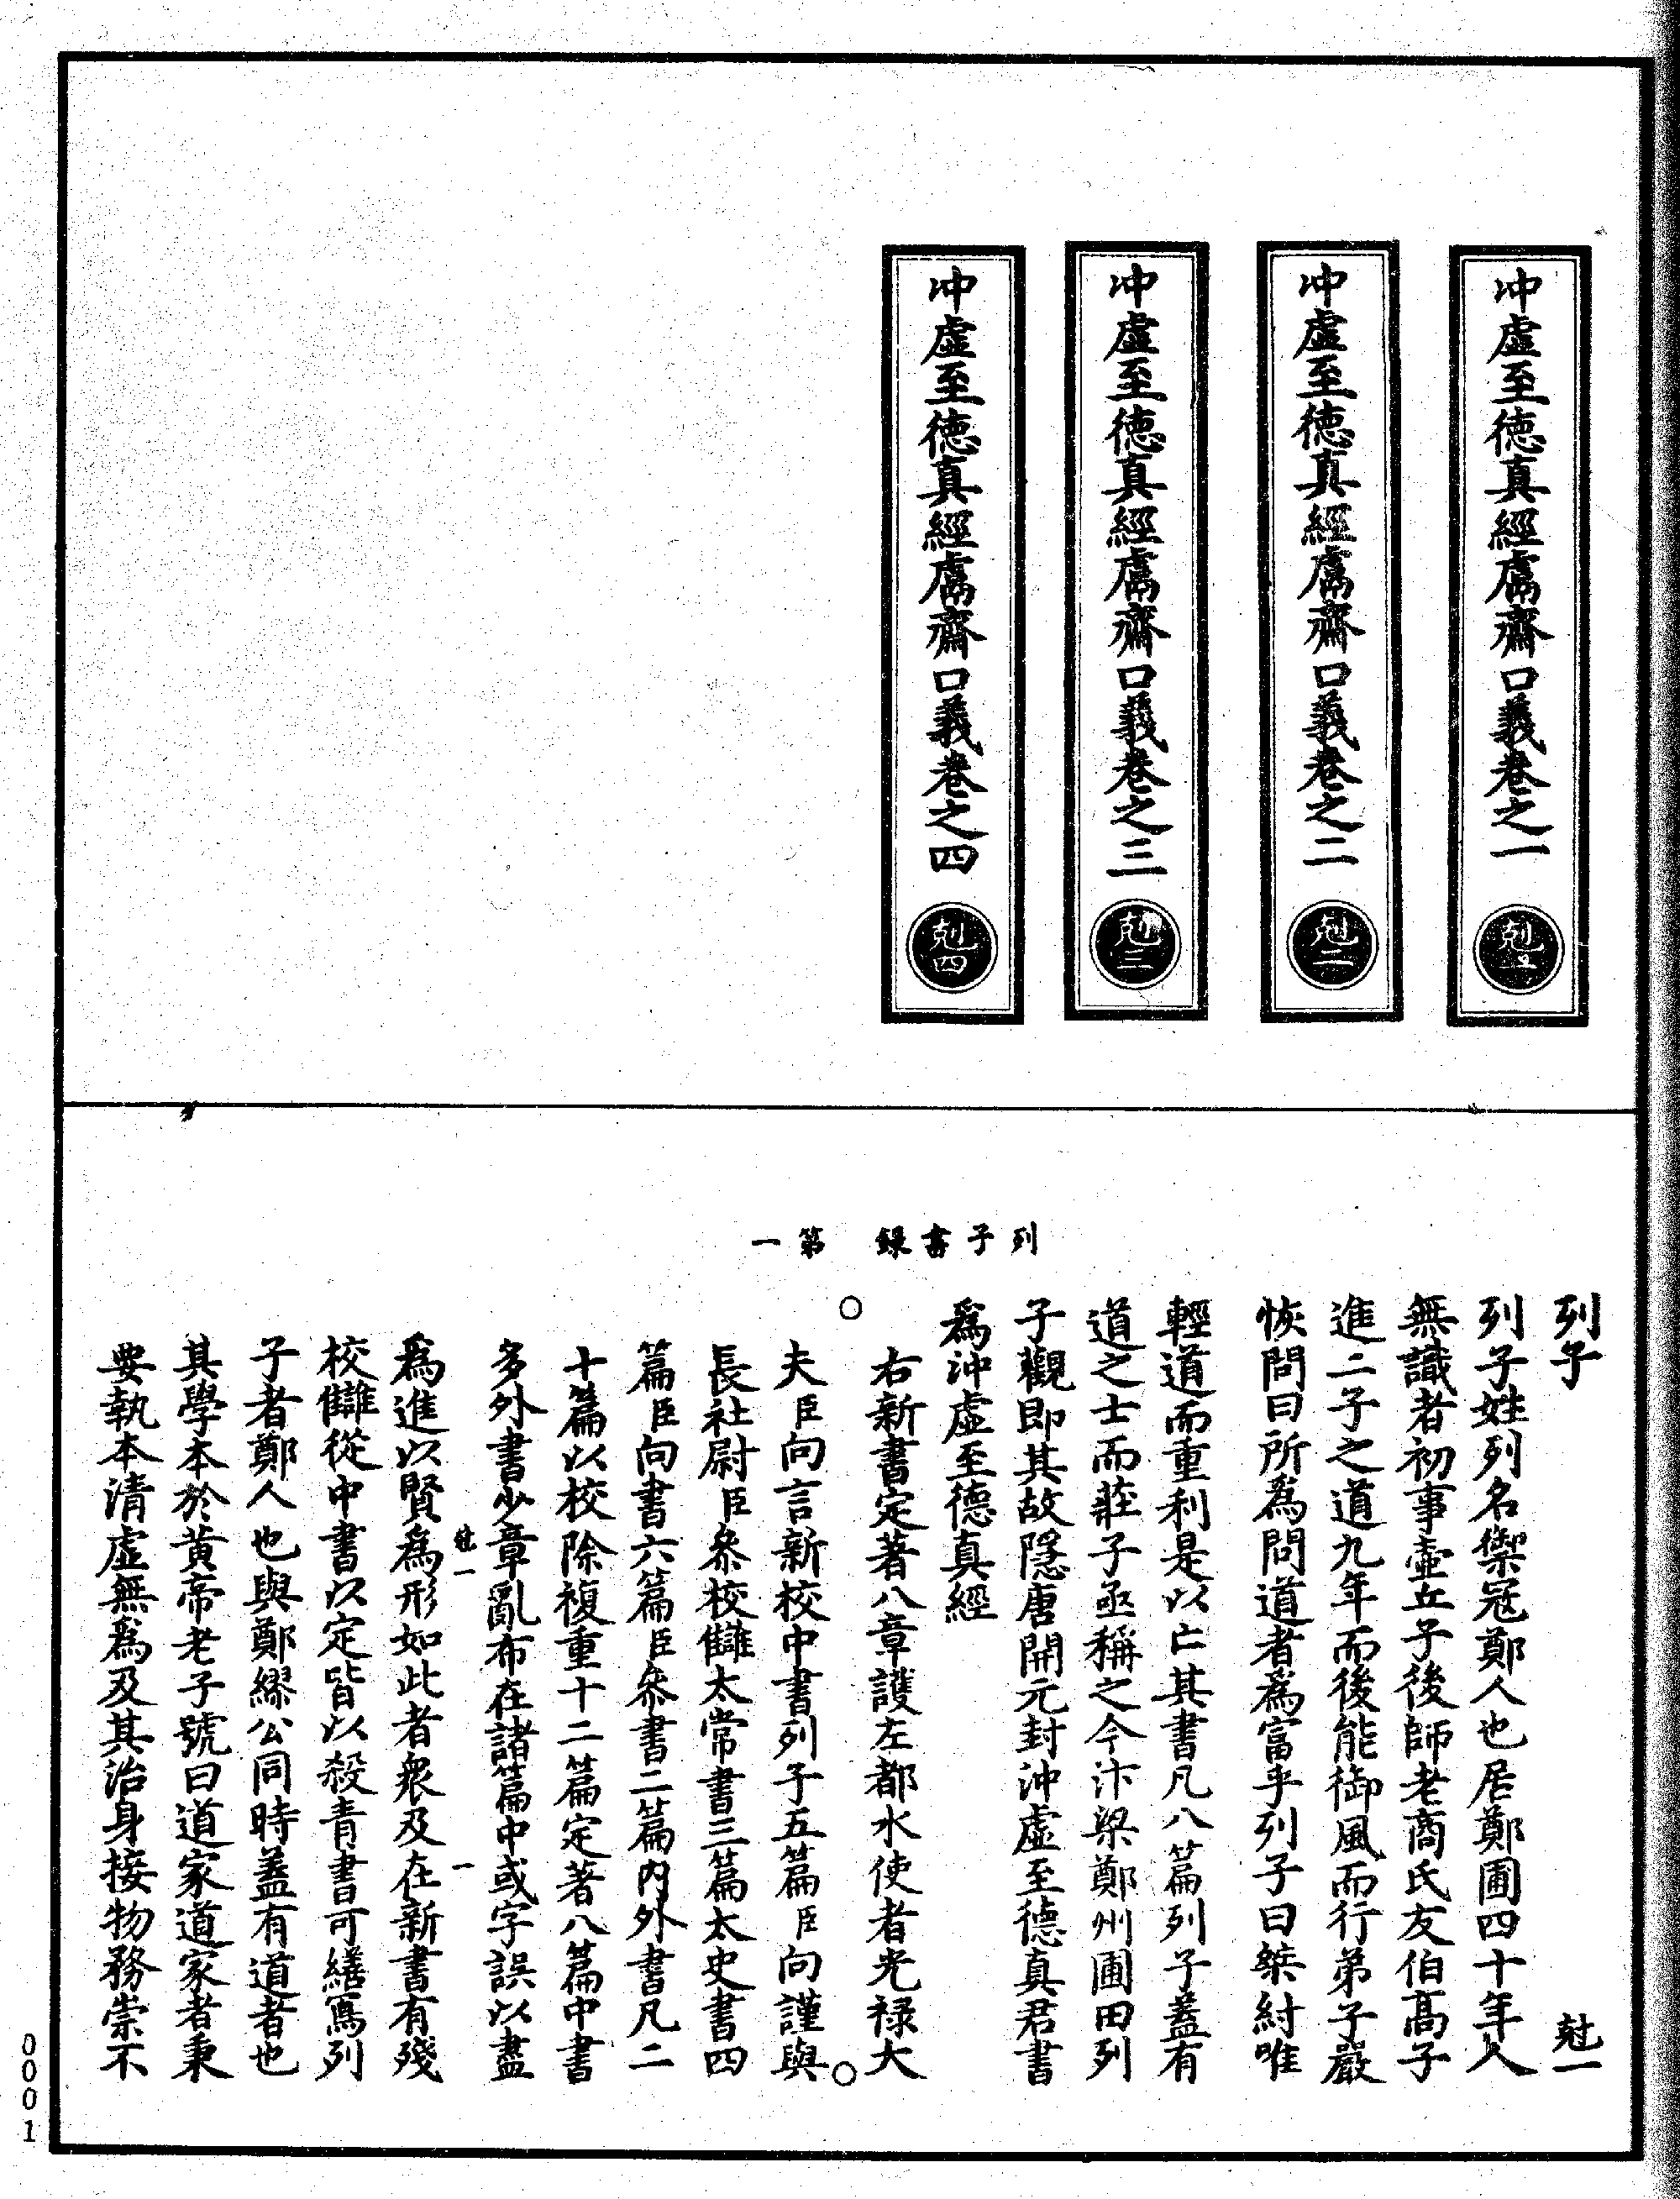 冲虛至德真經鬳齋口義卷之一 剋一
冲虛至德真經鬳齋口義卷之二 剋二
冲虛至德真經鬳齋口義卷之三 剋三
冲虛至德真經鬳齋口義卷之四 剋四
列子書錄 第一
列子 尅一
列子姓列名禦冠鄭人也居鄭圃四十年人
無識者初事壺丘子後師老商氏友伯髙子
進二子之道九年而後能御風而行弟子嚴
恢問曰所爲問道者爲富乎列子曰桀紂唯
輕道而重利是以亡其書凡八篇列子蓋有
道之士而莊子亟稱之今汴梁鄭州圃田列
子觀即其故隱唐開元封沖虛至德真君書
爲沖虛至德真經
右新書定著八章護左都水使者光祿大
夫臣向言新校中書列子五篇臣向謹與
長社尉臣叅校讎太常書三篇太史書四
篇臣向書六篇臣叅書二篇內外書凡二
十篇以校除複重十二篇定著八篇中書
多外書少章亂布在諸篇中或字誤以盡
尅一 一
爲進以賢爲形如此者衆及在新書有殘
校讎從中書以定皆以殺青書可繕寫列
子者鄭人也與鄭繆公同時蓋有道者也
其學本於黃帝老子號曰道家道家者秉
要執本清虛無爲及其治身接物務崇不
0001